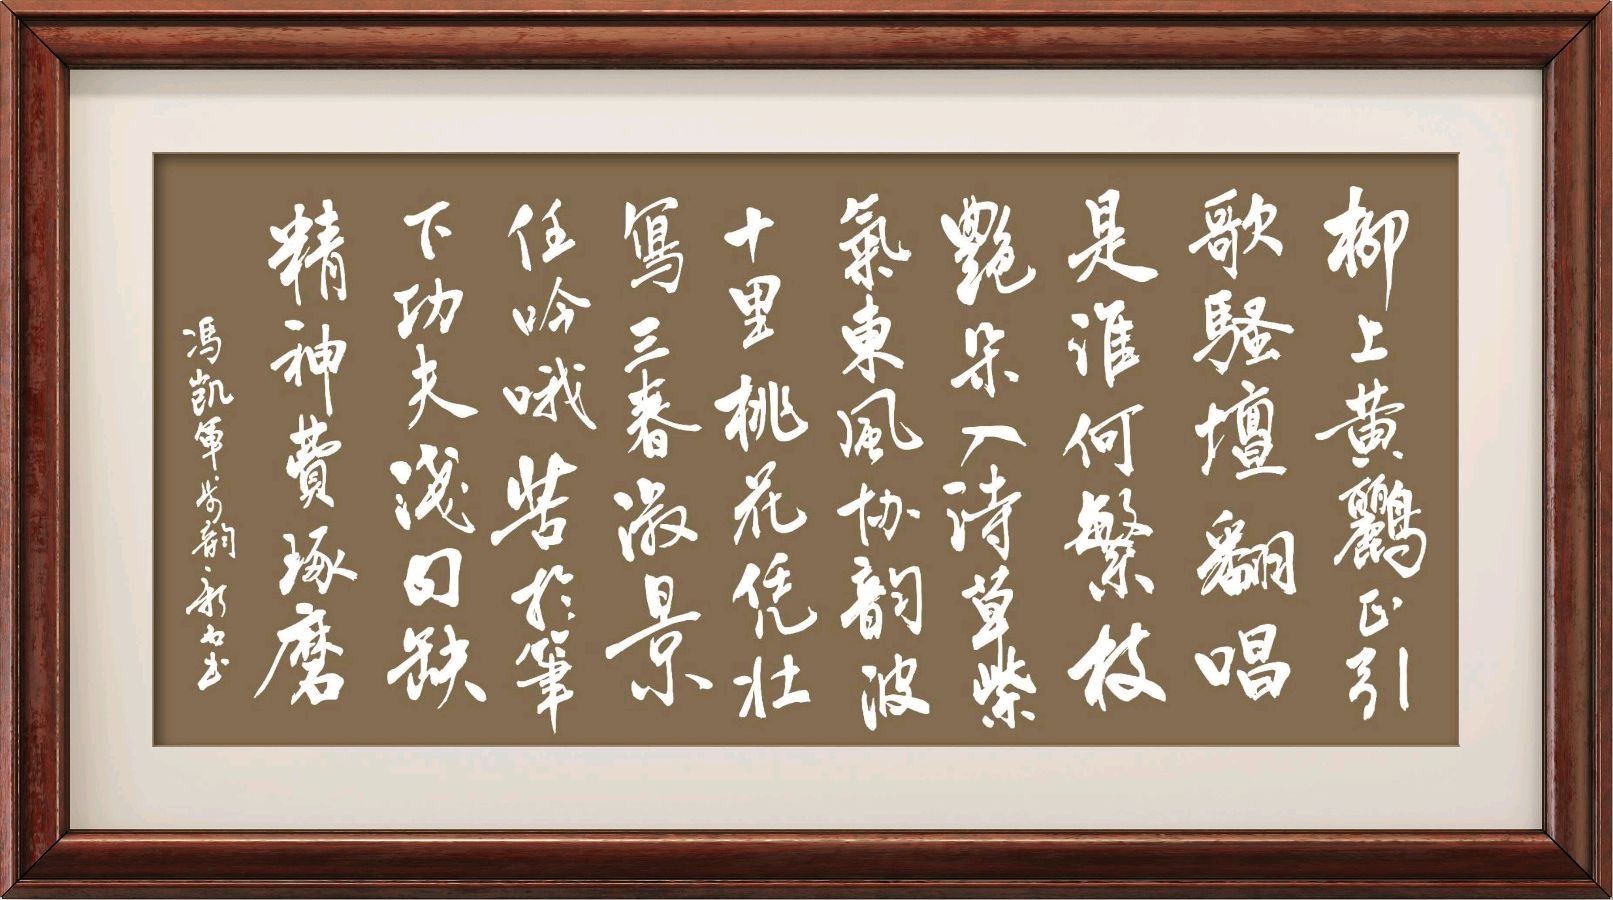 柳上黄鸝正引
歌騷壇翻唱
是誰何繁枝
艷朵入詩草紫
氣東風协韵波
十里桃花凭壮
寫三春淑景
任吟哦苦於筆
下功夫淺句缺
精神費琢磨
冯凯軍步韵新书